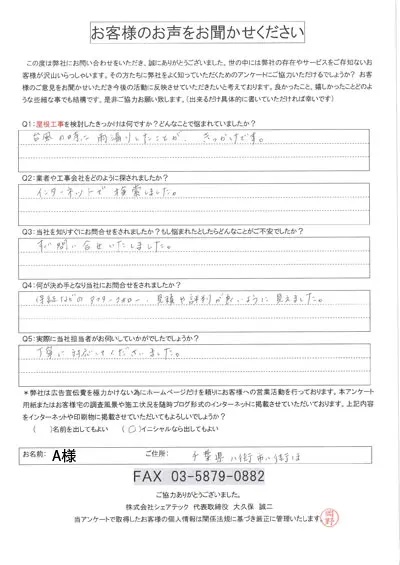 お客様のお声をお聞かせください
この度は弊社にお問い合わせをいただき、誠にありがとうございました。世の中には弊社の存在やサービスをご存知ないお
客様が沢山いらっしゃいます。その方たちに弊社をよく知っていただくためのアンケートにご協力いただけるでしょうか？ お客
様のご意見をお聞かせいただき今後の活動に反映させていただきたいと考えております。良かったこと、嬉しかったことどのよ
うな些細な事でも結構です。是非ご協力お願い致します。（出来るだけ具体的に書いていただければ幸いです）
Q1：屋根工事を検討したきっかけは何ですか？どんなことで悩まれていましたか？
台風の時に雨漏りしたことが、きっかけです。
Q2：業者や工事会社をどのように探されましたか？
インターネットで検索しました。
Q3：当社を知りすぐにお問合せをされましたか？もし悩まれたとしたらどんなことがご不安でしたか？
すぐ問い合せいたしました。
Q4：何が決め手となり当社にお問合せをされましたか？
保証などのアフターフォロー、見積や評判が良いように見えました。
Q5：実際に当社担当者がお伺いしていかがでしたでしょうか？
丁寧に対応してくださいました。
＊弊社は広告宣伝費を極力かけない為にホームページだけを頼りにお客様への営業活動を行っております。本アンケート
用紙またはお客様宅の調査風景や施工状況を随時ブログ形式のインターネットに掲載させていただいております。上記内容
をインターネットや印刷物に掲載させていただいてもよろしいでしょうか？
（ ）名前を出してもよい （○）イニシャルなら出してもよい
お名前： A様 ご住所： 千葉県八街市八街ほ
FAX 03-5879-0882
ご協力ありがとうございました。
株式会社シェアテック 代表取締役 大久保 誠二
当アンケートで取得したお客様の個人情報は関係法規に基づき厳正に管理いたします。